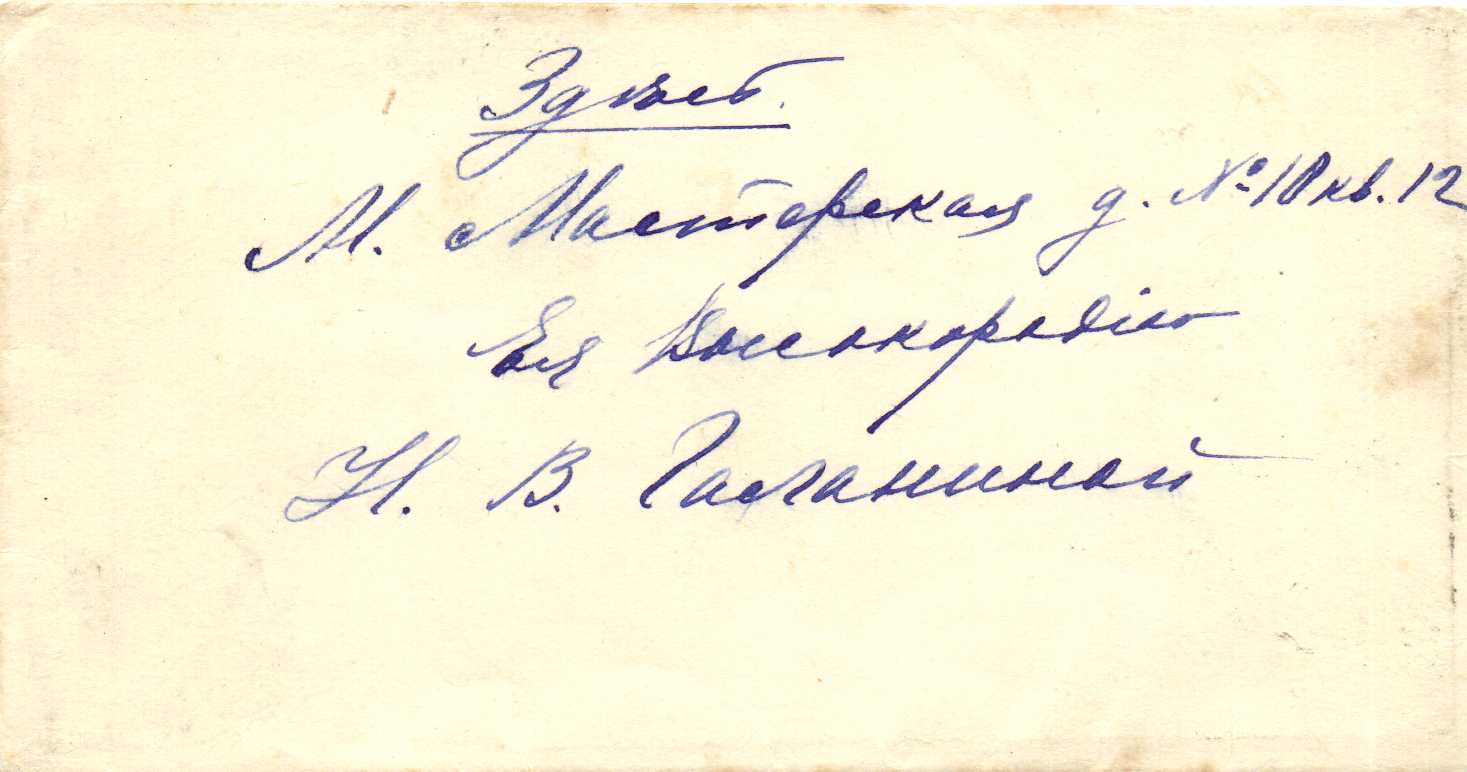 Здѣсь.
М. Мастерская д. № 10 кв. 12
Ея Высокородію
Н. В. Галаниной